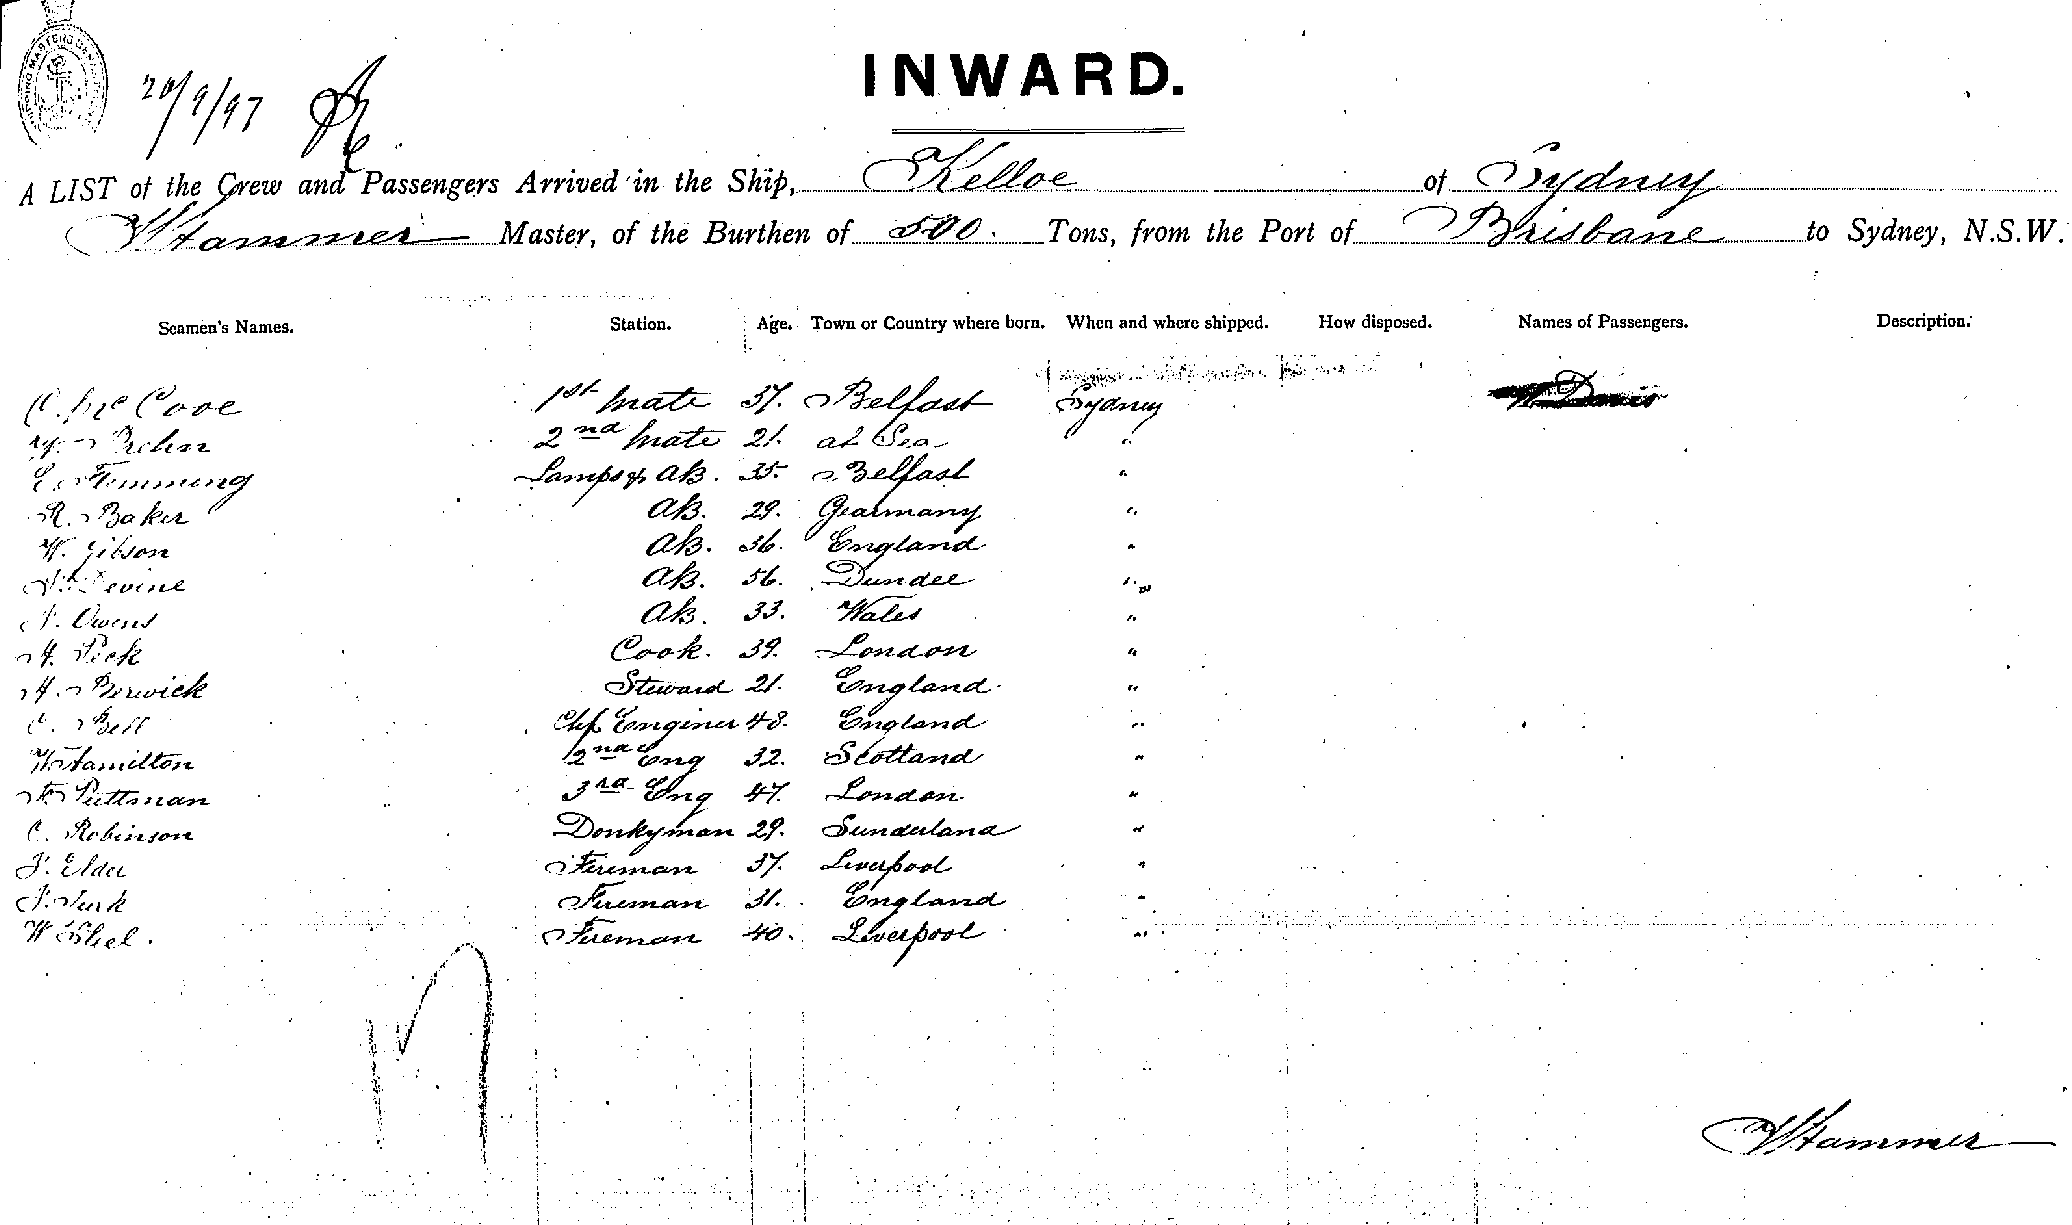 INWARD.
20/9/97
A LIST of the Crew and Passengers Arrived in the Ship, Kelloe of Sydney
Hammer Master, of the Burthen of 500. Tons, from the Port of Brisbane to Sydney, N.S.W.
Seamen's Names. Station. Age. Town or Country where born. When and where shipped. How disposed. Names of Passengers. Description.
1st Mate 37. Belfast Sydney Davis
2nd Mate 21. at Sea "
E. Flemming Lamps & AB. 35. Belfast "
R. Baker AB. 29. Gearmany "
W. Gibson AB. 36. England "
Devine AB. 56. Dundee "
Owens AB. 33. Wales "
H. Peck Cook. 39. London "
H. Berwick Steward 21. England "
C. Bell Chf Enginer 48. England "
W Hamilton 2nd Eng 32. Scotland "
Puttman 3rd Eng 47. London "
C. Robinson Donkyman 29. Sunderland "
J. Elder Fireman 37. Liverpool "
J. Turk Fireman 31. England "
W Fireman 40. Liverpool "
17
Hammer